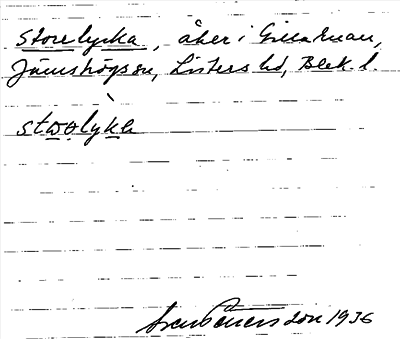 Storelycka, åker i Gillaruan,
Jämshögs sn, Listers hd, Blek. l.
stωolyka
Sven Petersson 1936